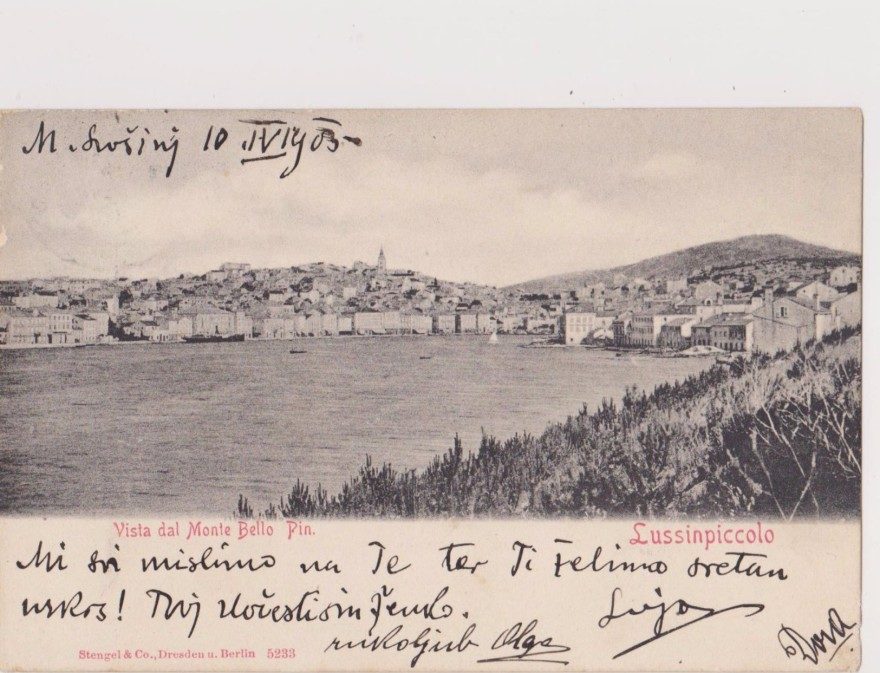 M. Lošinj 10 IV 1903
Vista dal Monte Bello Pin.
Lussinpiccolo
Mi svi mislimo na Te ter Ti želimo sretan
uskrs! Tvoj
rukoljub Olga
Dora
Stengel & Co., Dresden u. Berlin 5233